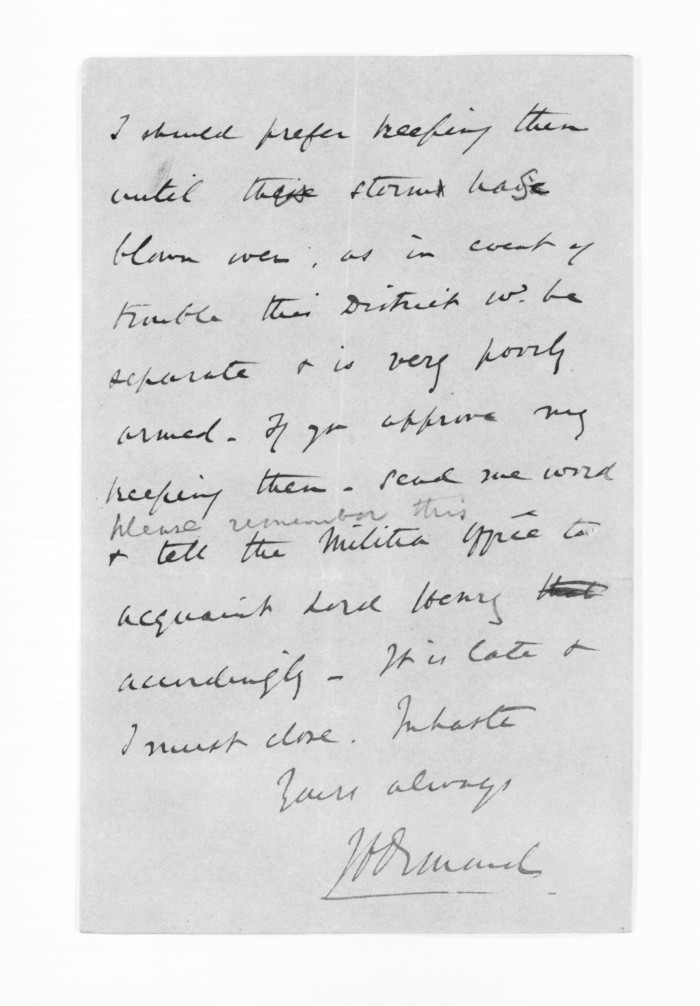 I should prefer keeping them
until this storm has
blown over, as in event of
trouble this District wd. be
separate & is very poorly
armed - If you approve my
keeping them - send me word
please remember this
& tell the Militia Office to
acquaint Lord Henry that
accordingly - It is late &
I must close. In haste
Yours always
JD Ormond